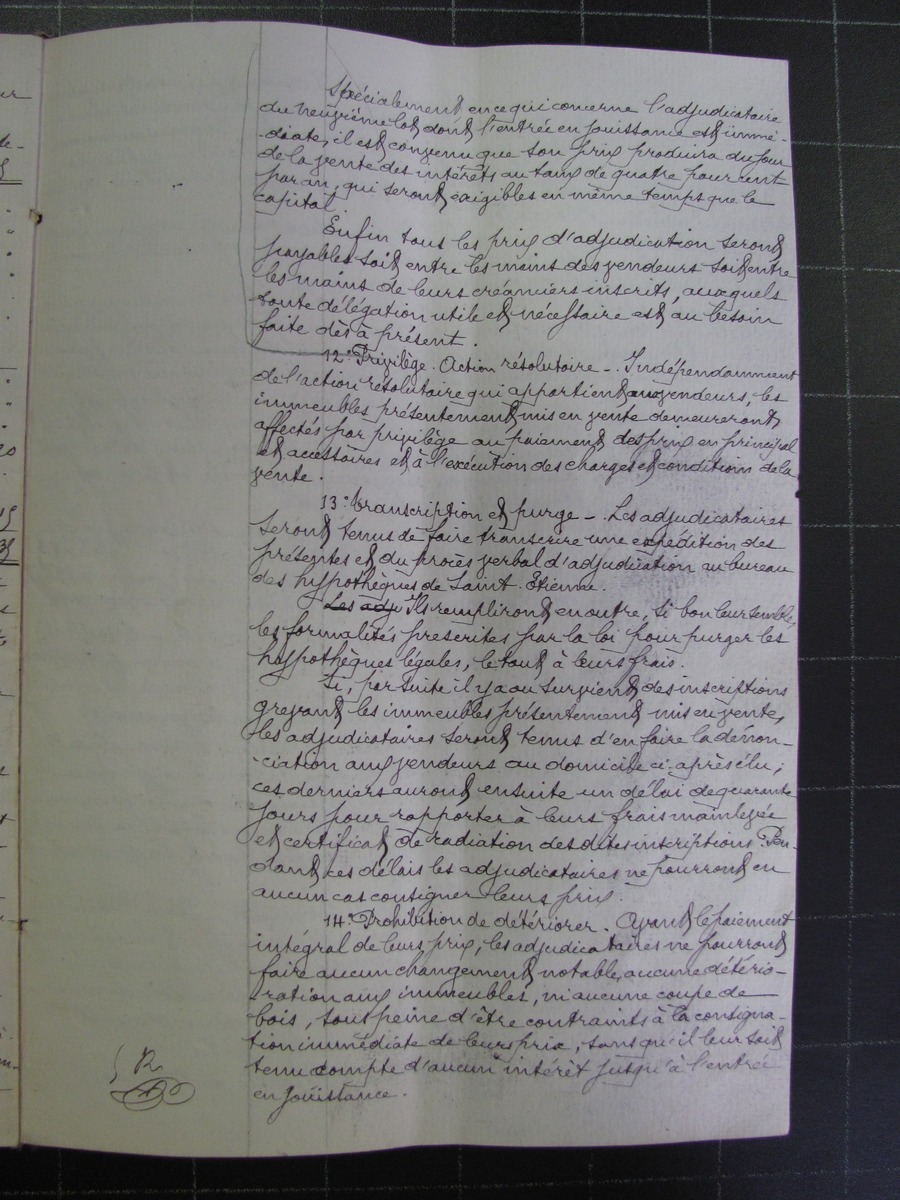 Spécialement en ce qui concerne l'adjudicataire
du neuvième lot dont l'entrée en jouissance est immé-
-diate, il est convenu que son prix produira du jour
de la vente des intérêts au taux de quatre pour cent
par an, qui seront exigibles en même temps que le
capital
Enfin tous les prix d'adjudication seront
payables soit entre les mains des vendeurs soit entre
les mains de leurs créanciers inscrits, auxquels
toute délégation utile et nécessaire est au besoin
faite dès à présent.
12° Privilège. Action résolutoire -. Indépendamment
de l'action résolutoire qui appartient aux vendeurs, les
immeubles présentement mis en vente demeureront
affectés par privilège au paiement des prix en principal
et accessoires et à l'exécution des charges et conditions de la
vente.
13° transcription et purge -. Les adjudicataires
seront tenus de faire transcrire une expédition des
présentes et du procès verbal d'adjudication au bureau
des hypothèques de Saint-Etienne.
Les adju Ils rempliront en outre, si bon leur semble,
les formalités prescrites par la loi pour purger les
hypothèques légales, le tout à leurs frais.
Si, par suite il y a ou survient des inscriptions
grevant les immeubles présentement mis en vente,
les adjudicataires seront tenus d'en faire la dénon-
-ciation aux vendeurs au domicile ci-après élu;
ces derniers auront ensuite un délai de quarante
jours pour rapporter à leurs frais mainlevée
et certificat de radiation des dites inscriptions. Pen-
dant ces délais les adjudicataires ne pourront en
aucun cas consigner leurs prix.
14° Prohibition de détériorer. Avant le paiement
intégral de leurs prix, les adjudicataires ne pourront
faire aucun changement notable, aucune détério-
-ration aux immeubles, ni aucune coupe de
bois, sous peine d'être contraints à la consigna-
tion immédiate de leurs prix, sans qu'il leur soit
tenu compte d'aucun intérêt jusqu'à l'entrée
en jouissance.